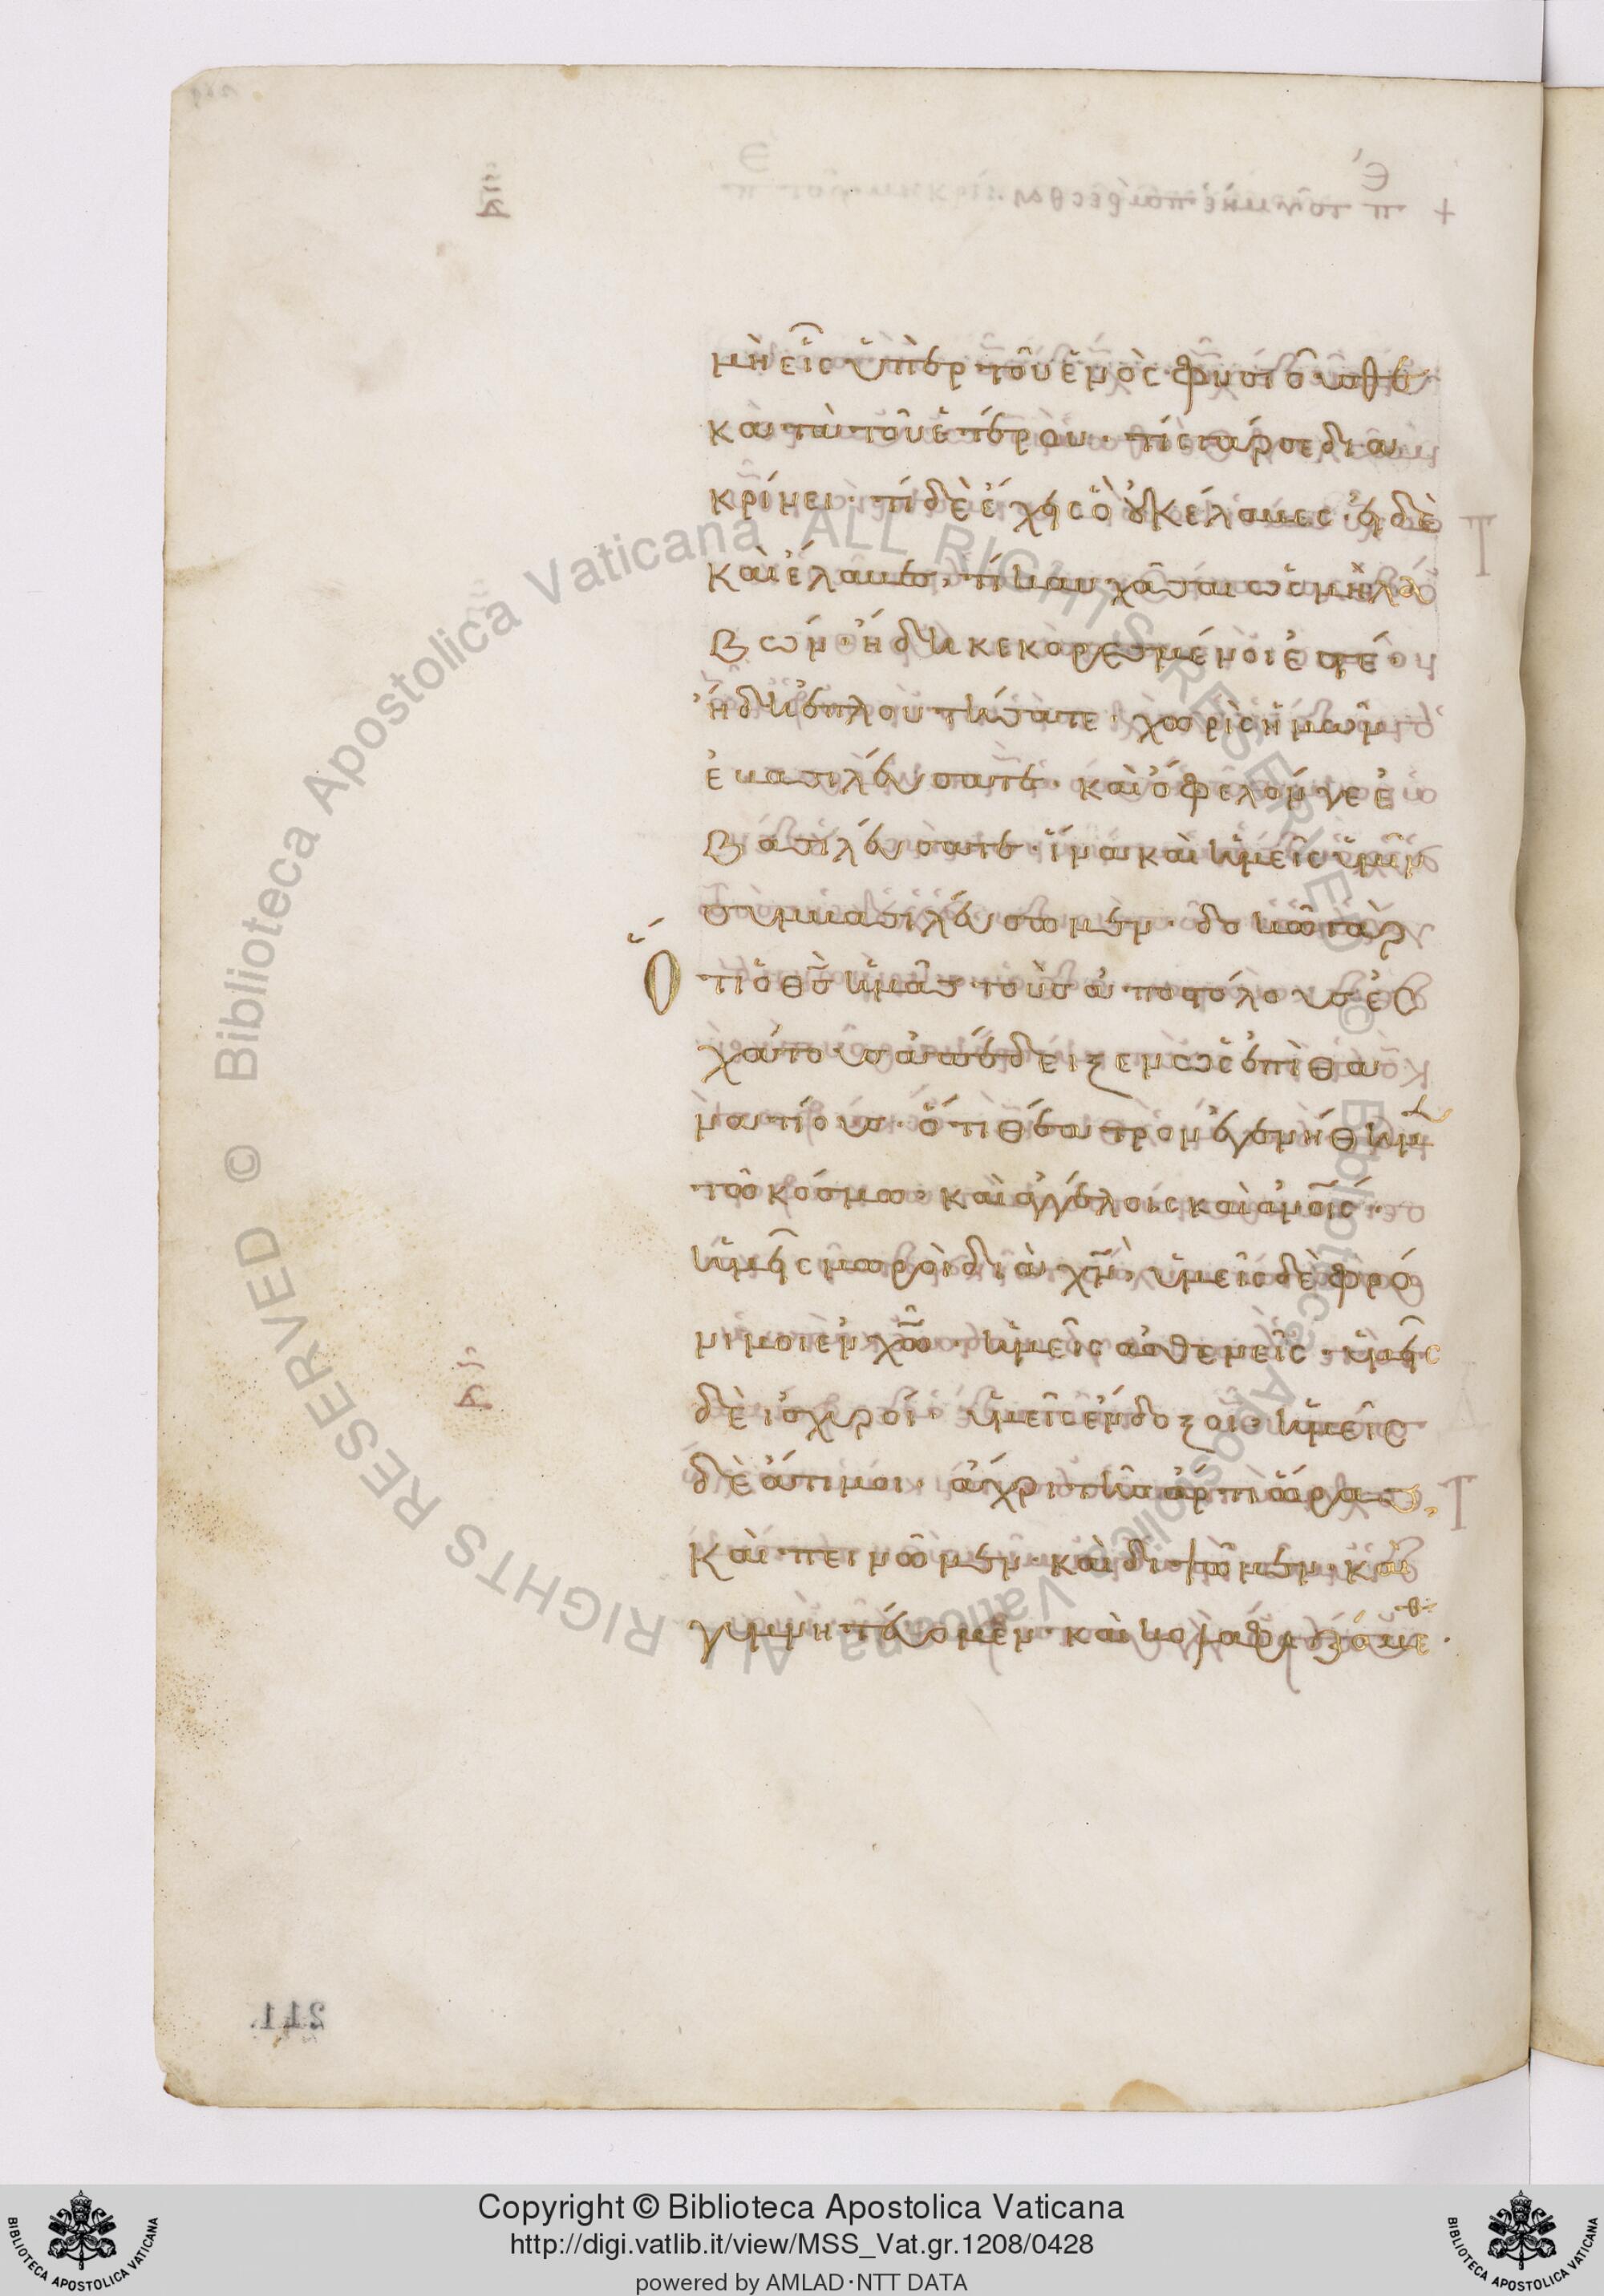 μὴ εἷς ὑπὲρ τοῦ ἑνὸς φυσιοῦσθε·
κατὰ τοῦ ἑτέρου· τίς γάρ σε δια
κρίνει· τί δὲ ἔχεις ὃ οὐκ ἔλαβες· εἰ δὲ
καὶ ἔλαβες, τί καυχᾶσαι ὡς μὴ λα
βών· ἤδη κεκορεσμένοι ἐστέ·
ἤδη ἐπλουτήσατε· χωρὶς ἡμῶν
ἐβασιλεύσατε· καὶ ὄφελόν γε ἐ
βασιλεύσατε· ἵνα καὶ ἡμεῖς ὑμῖν
συμβασιλεύσωμεν· δοκῶ γὰρ
ὅτι ὁ θς ἡμᾶς τοὺς ἀποστόλους ἐσ
χάτους ἀπέδειξεν ὡς ἐπιθα
νατίους· ὅτι θέατρον ἐγενήθημεν
τῷ κόσμῳ· καὶ ἀγγέλοις καὶ ἀνοις·
ἡμεῖς μωροὶ διὰ χν, ὑμεῖς δὲ φρό
νιμοι ἐν χω· ἡμεῖς ἀσθενεῖς· ὑμεῖς
δὲ ἰσχυροί· ὑμεῖς ἔνδοξοι· ἡμεῖς
δὲ ἄτιμοι· ἄχρι τῆς ἄρτι ὥρας,
καὶ πεινῶμεν· καὶ διψῶμεν· καὶ
γυμνητεύομεν· καὶ κολαφιζόμεθα·
211.
Copyright © Biblioteca Apostolica Vaticana
http://digi.vatlib.it/view/MSS_Vat.gr.1208/0428
powered by AMLAD·NTT DATA